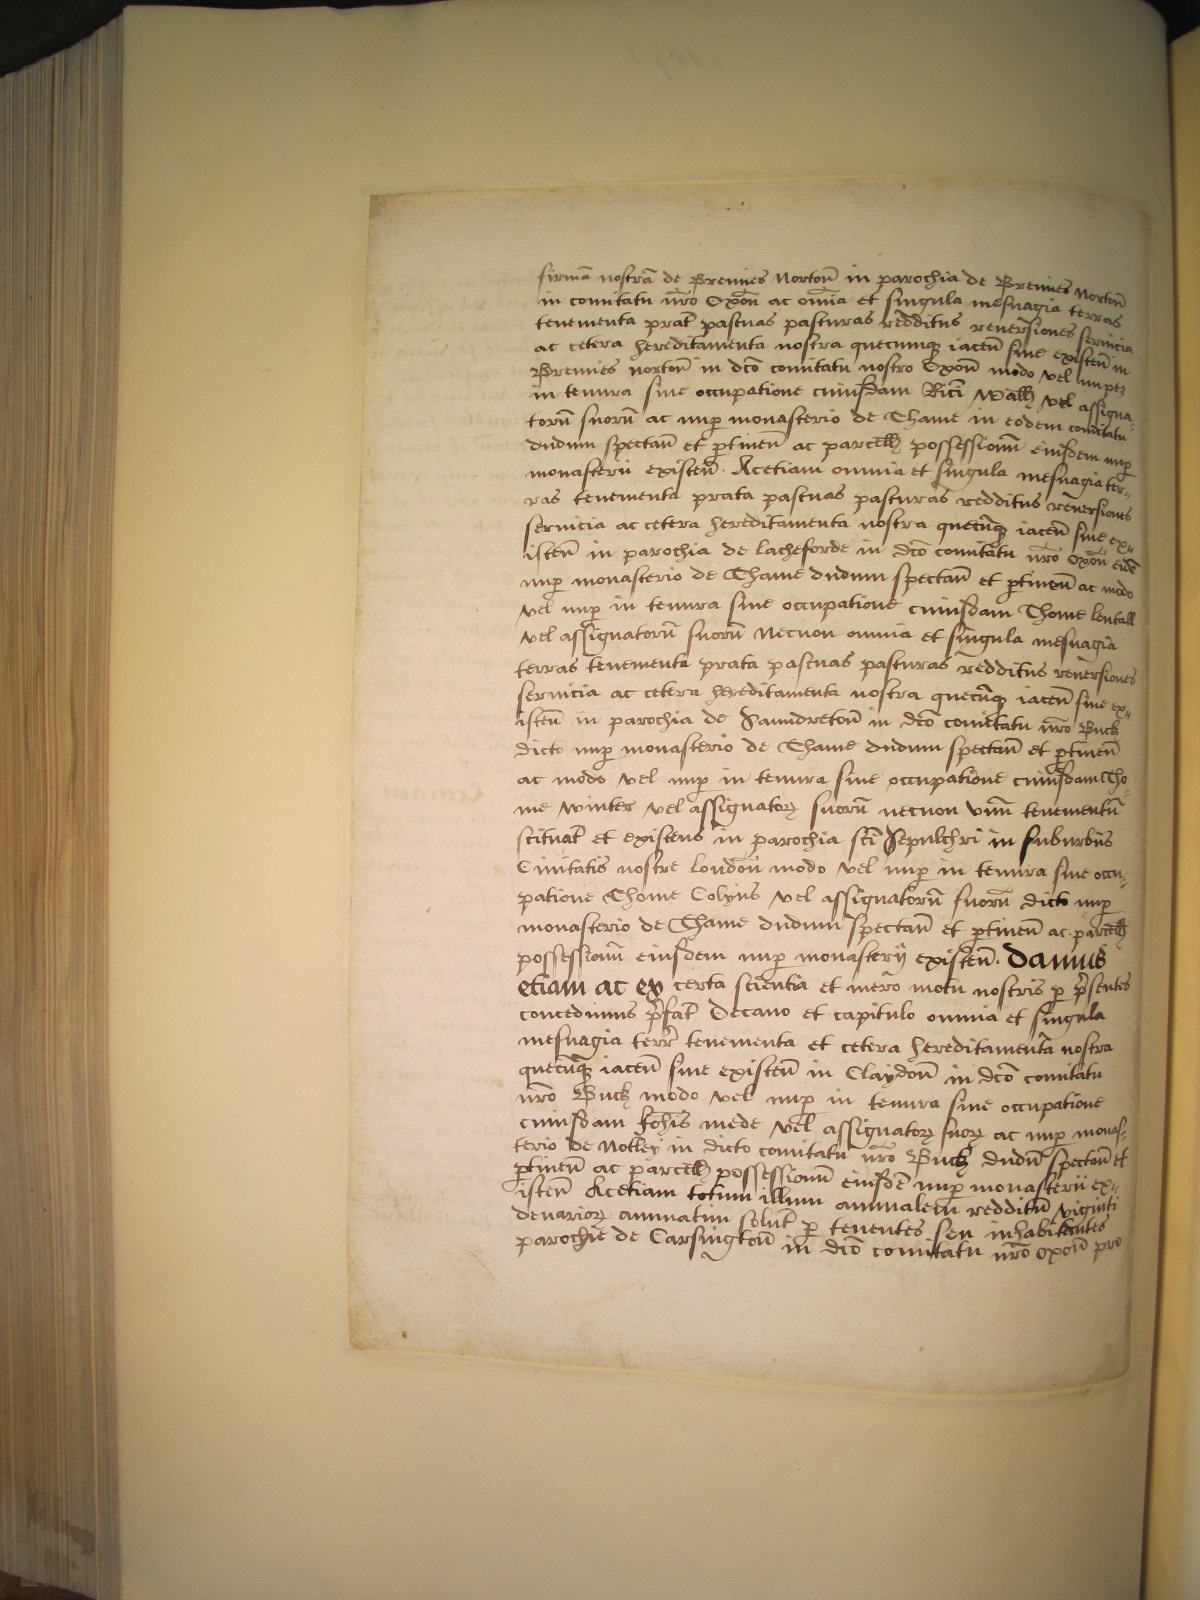 firmā nostrā de Bremes Nortoñ in parochia de Bremes Nortoñ
in comitatu nr̄o Oxoñ ac om̄ia et singula mesuagia terras
tenementa prat̄ pascuas pasturas redditus reuersiones seruicia
ac cetera hereditamenta nostra quecumqꝫ iaceñ siue existeñ in
Bremes nortoñ in dc̄o comitatu nostro Oxoñ modo vel nuper
in tenura siue occupatione cuiusdam Ric̄i Wallꝭ vel assigna-
torū suorū ac nuꝑ monasterio de Thame in eodem comitatu
dudum spectañ et ꝑtineñ ac parcellꝭ possessionū eiusdem nuꝑ
monasterii existeñ . Acetiam omnia et singula mesuagia ter-
ras tenementa prata pascuas pasturas redditus reuersiones
seruicia ac cetera hereditamenta nostra quecūqꝫ iaceñ siue ex-
isteñ in parochia de Lacheforde in dc̄o comitatu nr̄o Oxoñ eidē
nuꝑ monasterio de Thame dudum spectañ et ꝑtineñ ac modo
vel nuꝑ in tenura siue occupatione cuiusdam Thome lentall
vel assignatorū suorū Necnon omnia et singula mesuagia
terras tenementa prata pascuas pasturas redditus reuersiones
seruicia ac cetera hereditamenta nostra quecūqꝫ iaceñ siue ex-
isteñ in parochia de Saundretoñ in dc̄o comitatu nr̄o Buck
dicto nuꝑ monasterio de Thame dudum spectañ et ꝑtineñ
ac modo vel nuꝑ in tenura siue occupatione cuiusdam Tho-
me Winter vel assignatoꝝ suorū necnon vnū tenementū
scituat̄ et existens in parochia sc̄i Sepulchri in suburbiis
Ciuitatis nostre Londoñ modo vel nuꝑ in tenura siue occu-
patione Thome Colyns vel assignatorū suorū dicto nuꝑ
monasterio de Thame dudum spectañ et ꝑtineñ ac parcellꝭ
possessionū eiusdem nuꝑ monasterij existeñ . Damus
etiam ac ex certa scientia et mero motu nostris ꝑ p̄sentes
concedimus p̄fat̄ Decano et capitulo omnia et singula
mesuagia terr̄ tenementa et cetera hereditamenta nostra
quecūqꝫ iaceñ siue existeñ in Claydoñ in dc̄o comitatu
nr̄o Buck modo vel nuꝑ in tenura siue occupatione
cuiusdam Joh̄is mede vel assignatoꝝ suoꝝ ac nuꝑ monas-
terio de Notley in dicto comitatu nr̄o Buck dudū spectañ et
ꝑtineñ ac parcellꝭ possessionū eiusdē nuꝑ monasterii ex-
isteñ Acetiam totum illum annualem redditū viginti
denarioꝝ annuatim solut̄ ꝑ tenentes seu inhabitantes
parochie de Carsingtoñ in dc̄o comitatu nr̄o oxoñ pro